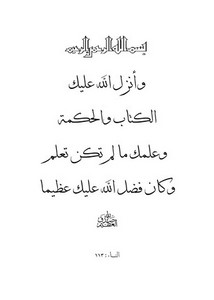 بسم الله الرحمن الرحيم
وأنزل الله عليك
الكتاب والحكمة
وعلمك ما لم تكن تعلم
وكان فضل الله عليك عظيما
النساء : ١١٣